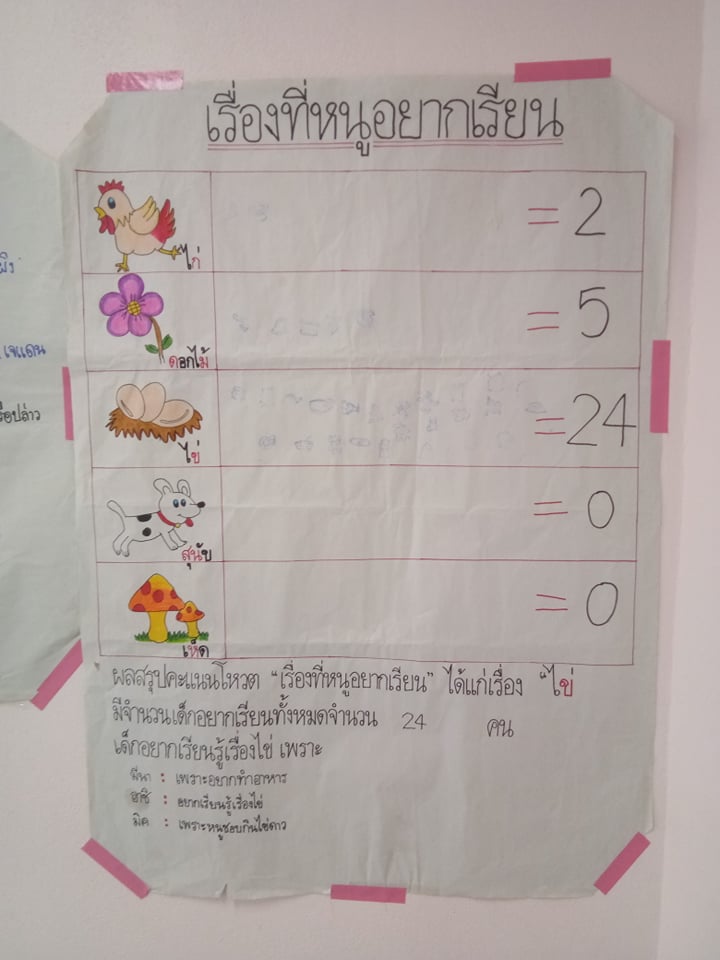 เรื่องที่หนูอยากเรียน
ไก่ = 2
ดอกไม้ = 5
ไข่ = 24
สุนัข = 0
เห็ด = 0
ผลสรุปคะแนนโหวต "เรื่องที่หนูอยากเรียน" ได้แก่เรื่อง "ไข่
มีจำนวนเด็กอยากเรียนทั้งหมดจำนวน 24 คน
เด็กอยากเรียนรู้เรื่องไข่ เพราะ
มีนา : เพราะอยากทำอาหาร
ฮาซิ : อยากเรียนรู้เรื่องไข่
มิค : เพราะหนูชอบกินไข่ดาว